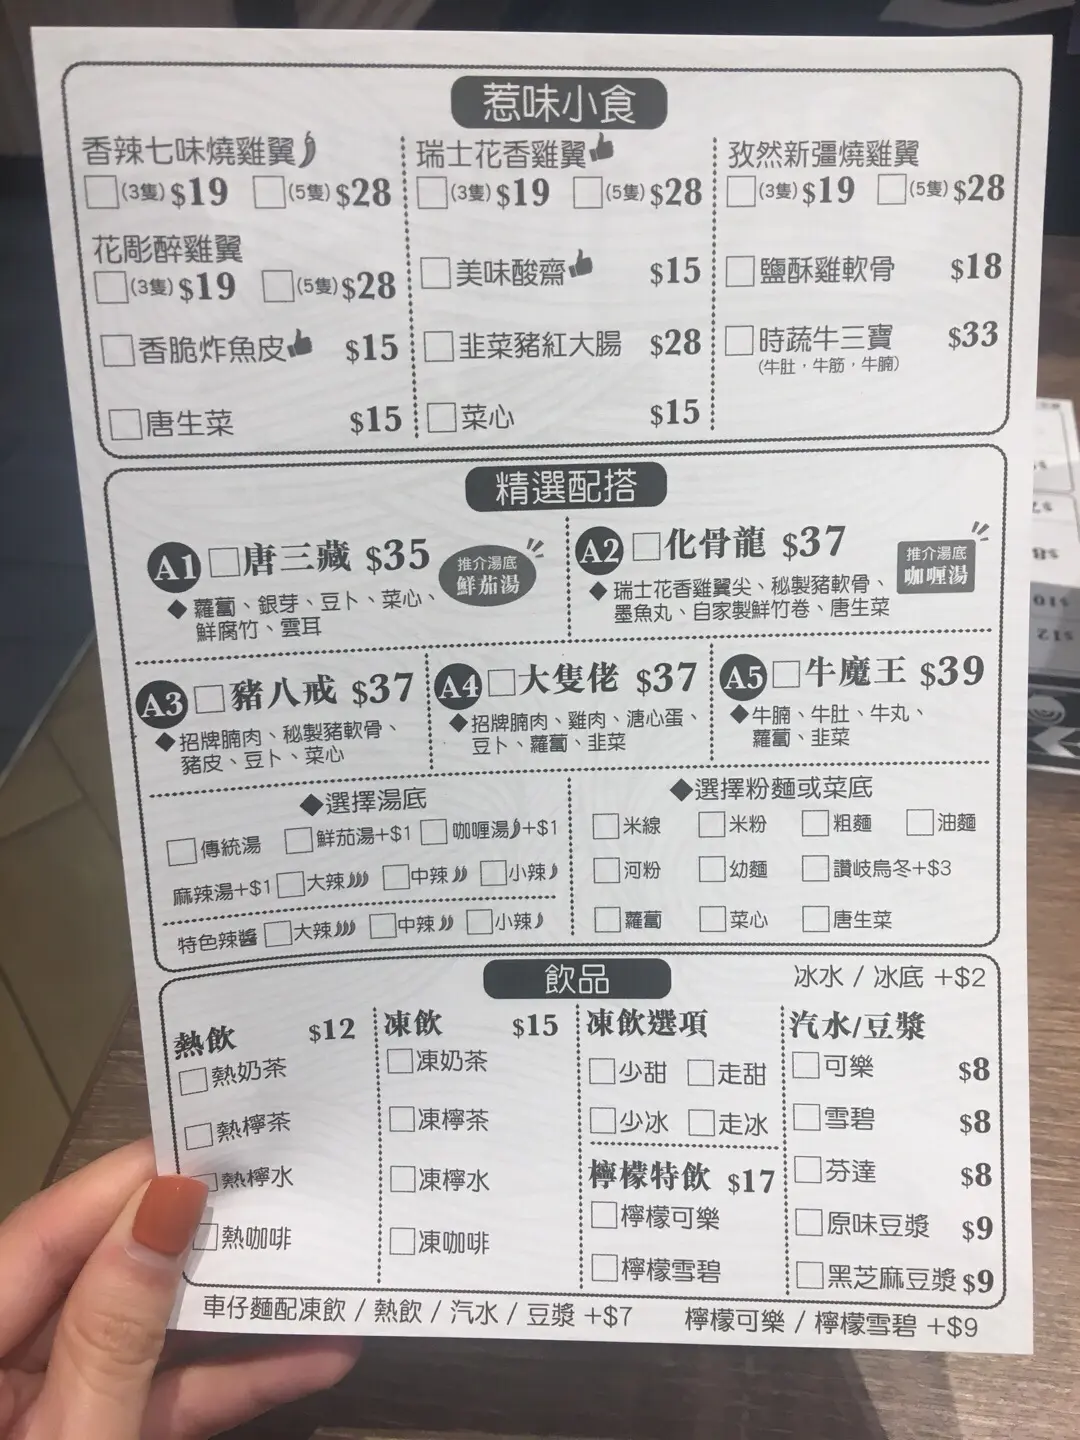 惹味小食
香辣七味燒雞翼
(3隻) $19 (5隻) $28
花彫醉雞翼
(3隻) $19 (5隻) $28
香脆炸魚皮 $15
唐生菜 $15
瑞士花香雞翼
(3隻) $19 (5隻) $28
美味酸齋 $15
韭菜豬紅大腸 $28
菜心 $15
孜然新疆燒雞翼
(3隻) $19 (5隻) $28
鹽酥雞軟骨 $18
時蔬牛三寶 $33
(牛肚，牛筋，牛腩)
精選配搭
A1 唐三藏 $35
推介湯底
鮮茄湯
◆ 蘿蔔、銀芽、豆卜、菜心、
鮮腐竹、雲耳
A2 化骨龍 $37
推介湯底
咖喱湯
◆ 瑞士花香雞翼尖、秘製豬軟骨、
墨魚丸、自家製鮮竹卷、唐生菜
A3 豬八戒 $37
◆ 招牌腩肉、秘製豬軟骨、
豬皮、豆卜、菜心
A4 大隻佬 $37
◆ 招牌腩肉、雞肉、溏心蛋、
豆卜、蘿蔔、韭菜
A5 牛魔王 $39
◆ 牛腩、牛肚、牛丸、
蘿蔔、韭菜
◆選擇湯底
傳統湯 鮮茄湯+$1 咖喱湯+$1
麻辣湯+$1 大辣 中辣 小辣
特色辣醬 大辣 中辣 小辣
◆選擇粉麵或菜底
米線 米粉 粗麵 油麵
河粉 幼麵 讚岐烏冬+$3
蘿蔔 菜心 唐生菜
飲品
冰水 / 冰底 +$2
熱飲 $12
熱奶茶
熱檸茶
熱檸水
熱咖啡
凍飲 $15
凍奶茶
凍檸茶
凍檸水
凍咖啡
凍飲選項
少甜 走甜
少冰 走冰
檸檬特飲 $17
檸檬可樂
檸檬雪碧
汽水/豆漿
可樂 $8
雪碧 $8
芬達 $8
原味豆漿 $9
黑芝麻豆漿 $9
車仔麵配凍飲 / 熱飲 / 汽水 / 豆漿 +$7 檸檬可樂 / 檸檬雪碧 +$9